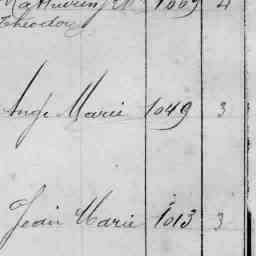 Mathurin
Théodore
Ange Marie 1049 3
Jean Marie 1013 3